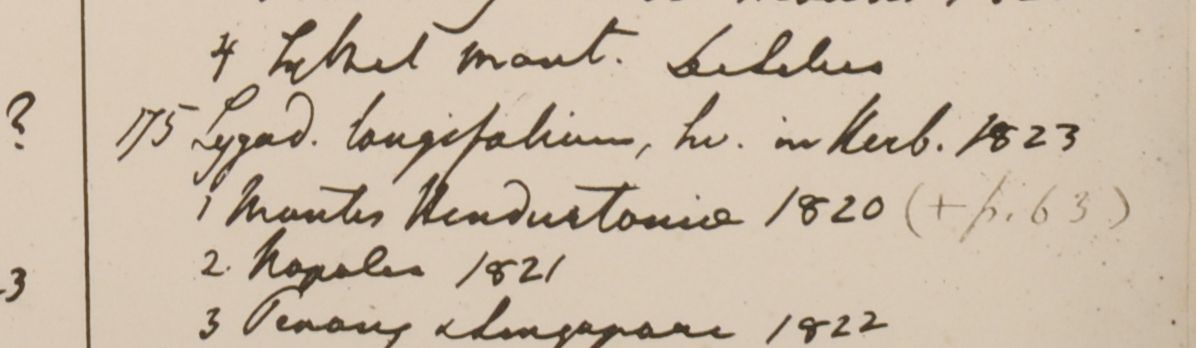 4 Sylhet mont. DeSilva
?
175 Lygod. longifolium, hv. in Herb. 1823
1 Montes Hindustania 1820 (+ p. 63)
2. Napalia 1821
3
3 Penang & Singapore 1822